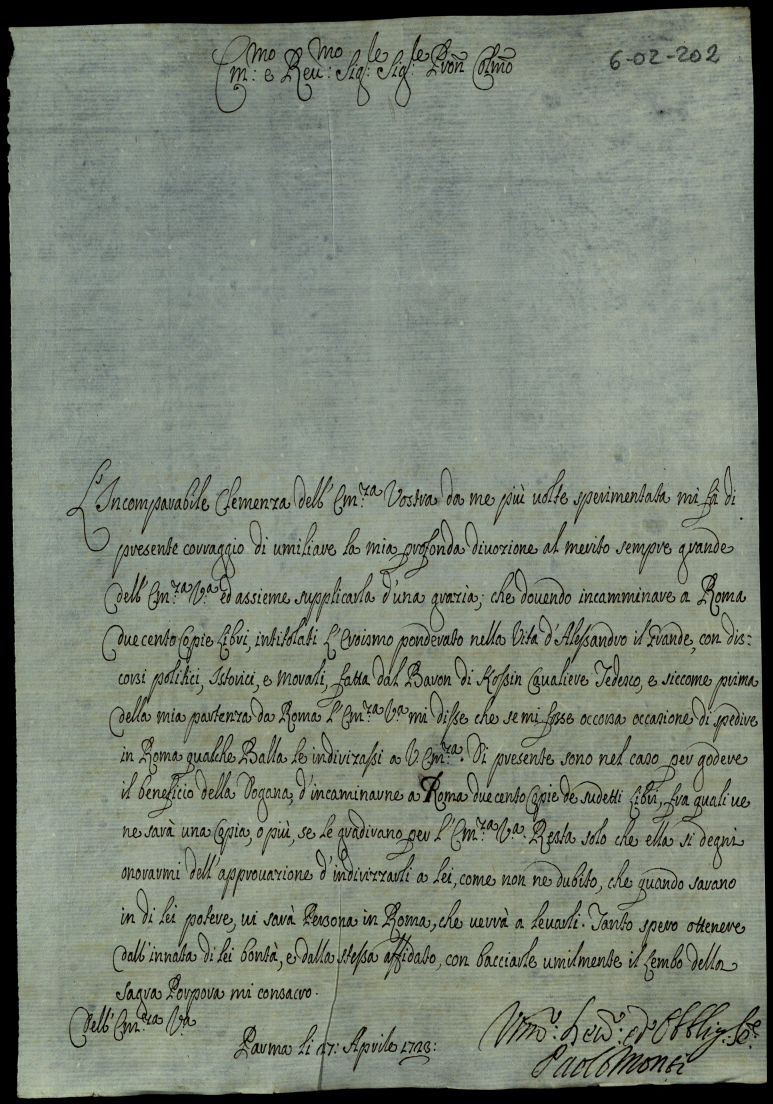 Em:mo e Reu:mo Sig:le Sig:le Pron Colmo
6-02-202
L'Incomparabile Clemenza dell' Em.za Vostra da me più uolte sperimentata mi fà di
presente corraggio di umiliare la mia profonda diuozione al merito sempre grande
dell' Em.za V.a ed assieme supplicarla d'una grazia; che douendo incamminare a Roma
duecento Copie Libri, intitolati L'Eroismo ponderato nella Vita d'Alessandro il Grande, con dis:
corsi politici, Istorici, e Morali, fatta dal Baron di Kossin Caualiere Tedesco, e siccome prima
della mia partenza da Roma l'Em.za V.a mi disse che se mi fosse occorsa occasione di spedire
in Roma qualche Balla le indirizassi a V. Em.za. Di presente sono nel caso per godere
il beneficio della Dogana, d'incaminarne a Roma duecento Copie de sudetti Libri, fra quali ue
ne sarà una Copia, o più, se le gradirano per l'Em.za V.a. Resta solo che ella si degni
onorarmi dell'approuazione d'indirizzarli a lei, come non ne dubito, che quando sarano
in di lei potere, ui sarà Persona in Roma, che uerrà a leuarli. Tanto spero ottenere
dall'innata di lei bontà, e dalla stessa affidato, con bacciarle umilmente il Lembo della
sagra Porpora mi consacro.
Dell' Em.za V.a
Parma li 27: Aprile 1723:
Um.o: Deu.o: ed Obblig: Se.e
Paolo Monti